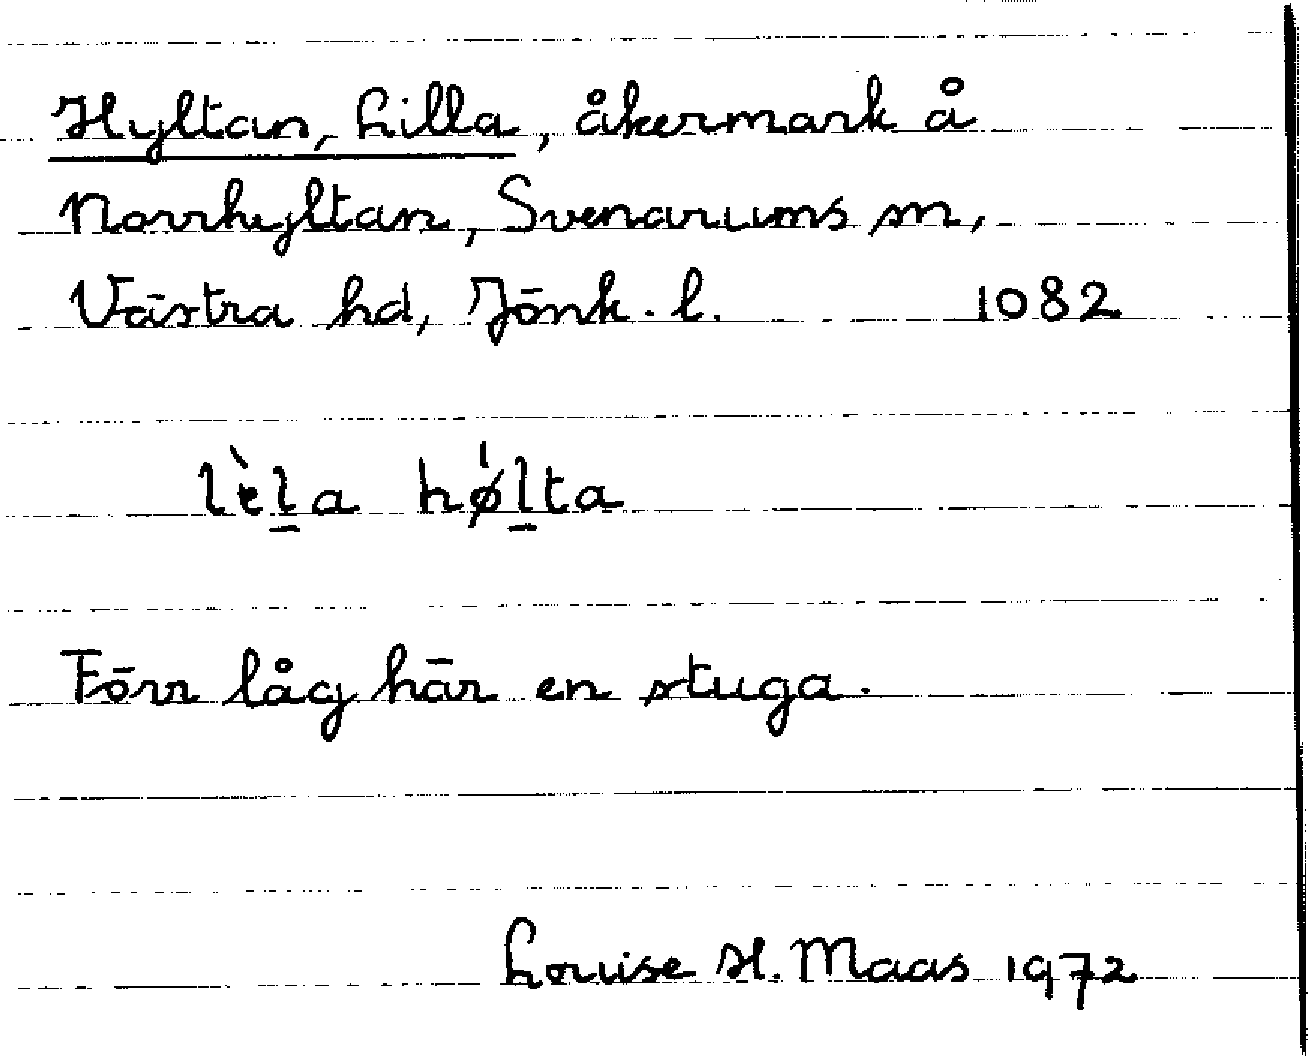 Hyltan, Lilla, åkermark å
Norrhyltan, Svenarums sn,
Västra hd, Jönk. l. 1082
lɛ̀l̲a hǿl̲ta
Förr låg här en stuga.
Louise H. Maas 1972